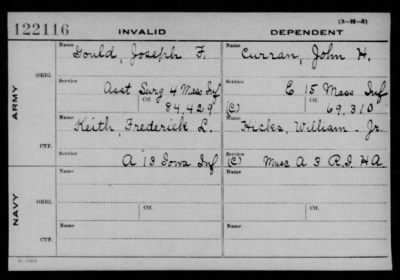 (3-H-5)
122116 INVALID DEPENDENT
ARMY
ORIG.
Name Name
Gould, Joseph F. Curran, John H.
Service Service
Asst Surg 4 Mass Inf E 15 Mass Inf
Ctf. Ctf.
84,429 (C) 69,310
CTF.
Name Name
Keith, Frederick L. Hicks, William - Jr.
Service Service
A 13 Iowa Inf (C) Musc A 3 R.I. H.A.
NAVY
ORIG.
Name Name
Service Ctf. Service Ctf.
CTF.
Name Name
Service Service